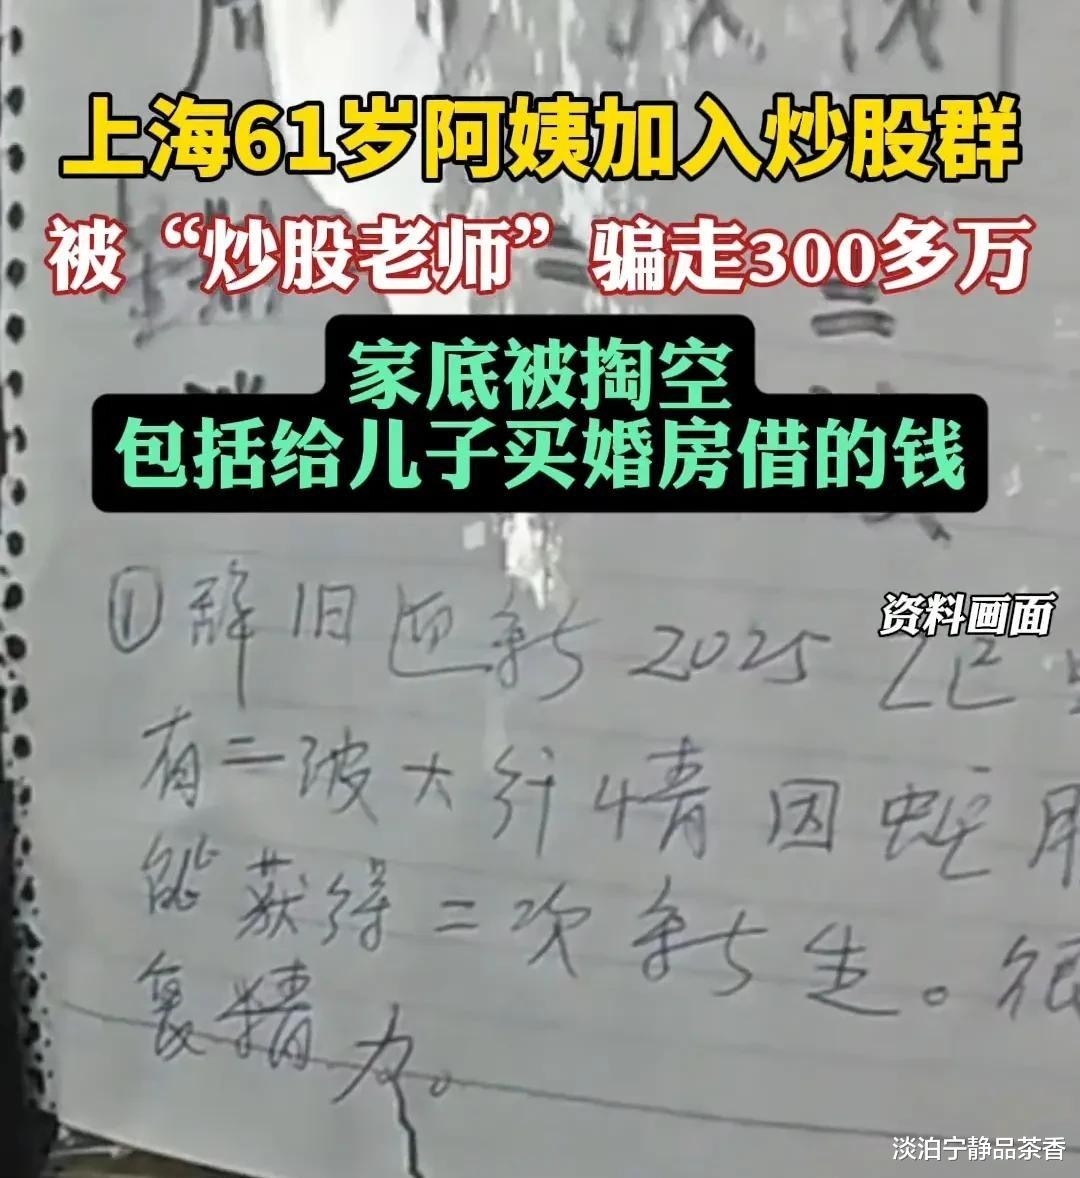 上海61岁阿姨加入炒股群
被“炒股老师”骗走300多万
家底被掏空
包括给儿子买婚房借的钱
资料画面
①辞旧迎新 2025 乙巳
有二波大行情因蛇
能获得二次新生。很
精力。
淡泊宁静品茶香